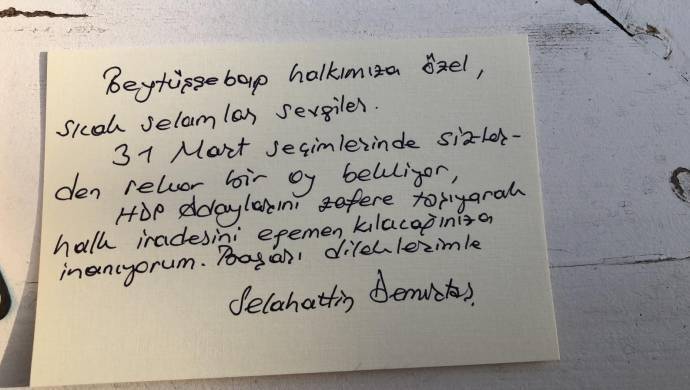 Beytüşşebap halkımıza özel,
sıcak selamlar sevgiler.
31 Mart seçimlerinde sizler-
den rekor bir oy bekliyor,
HDP Adaylarını zafere taşıyarak
halk iradesini egemen kılacağınıza
inanıyorum. Başarı dileklerimle
Selahattin Demirtaş